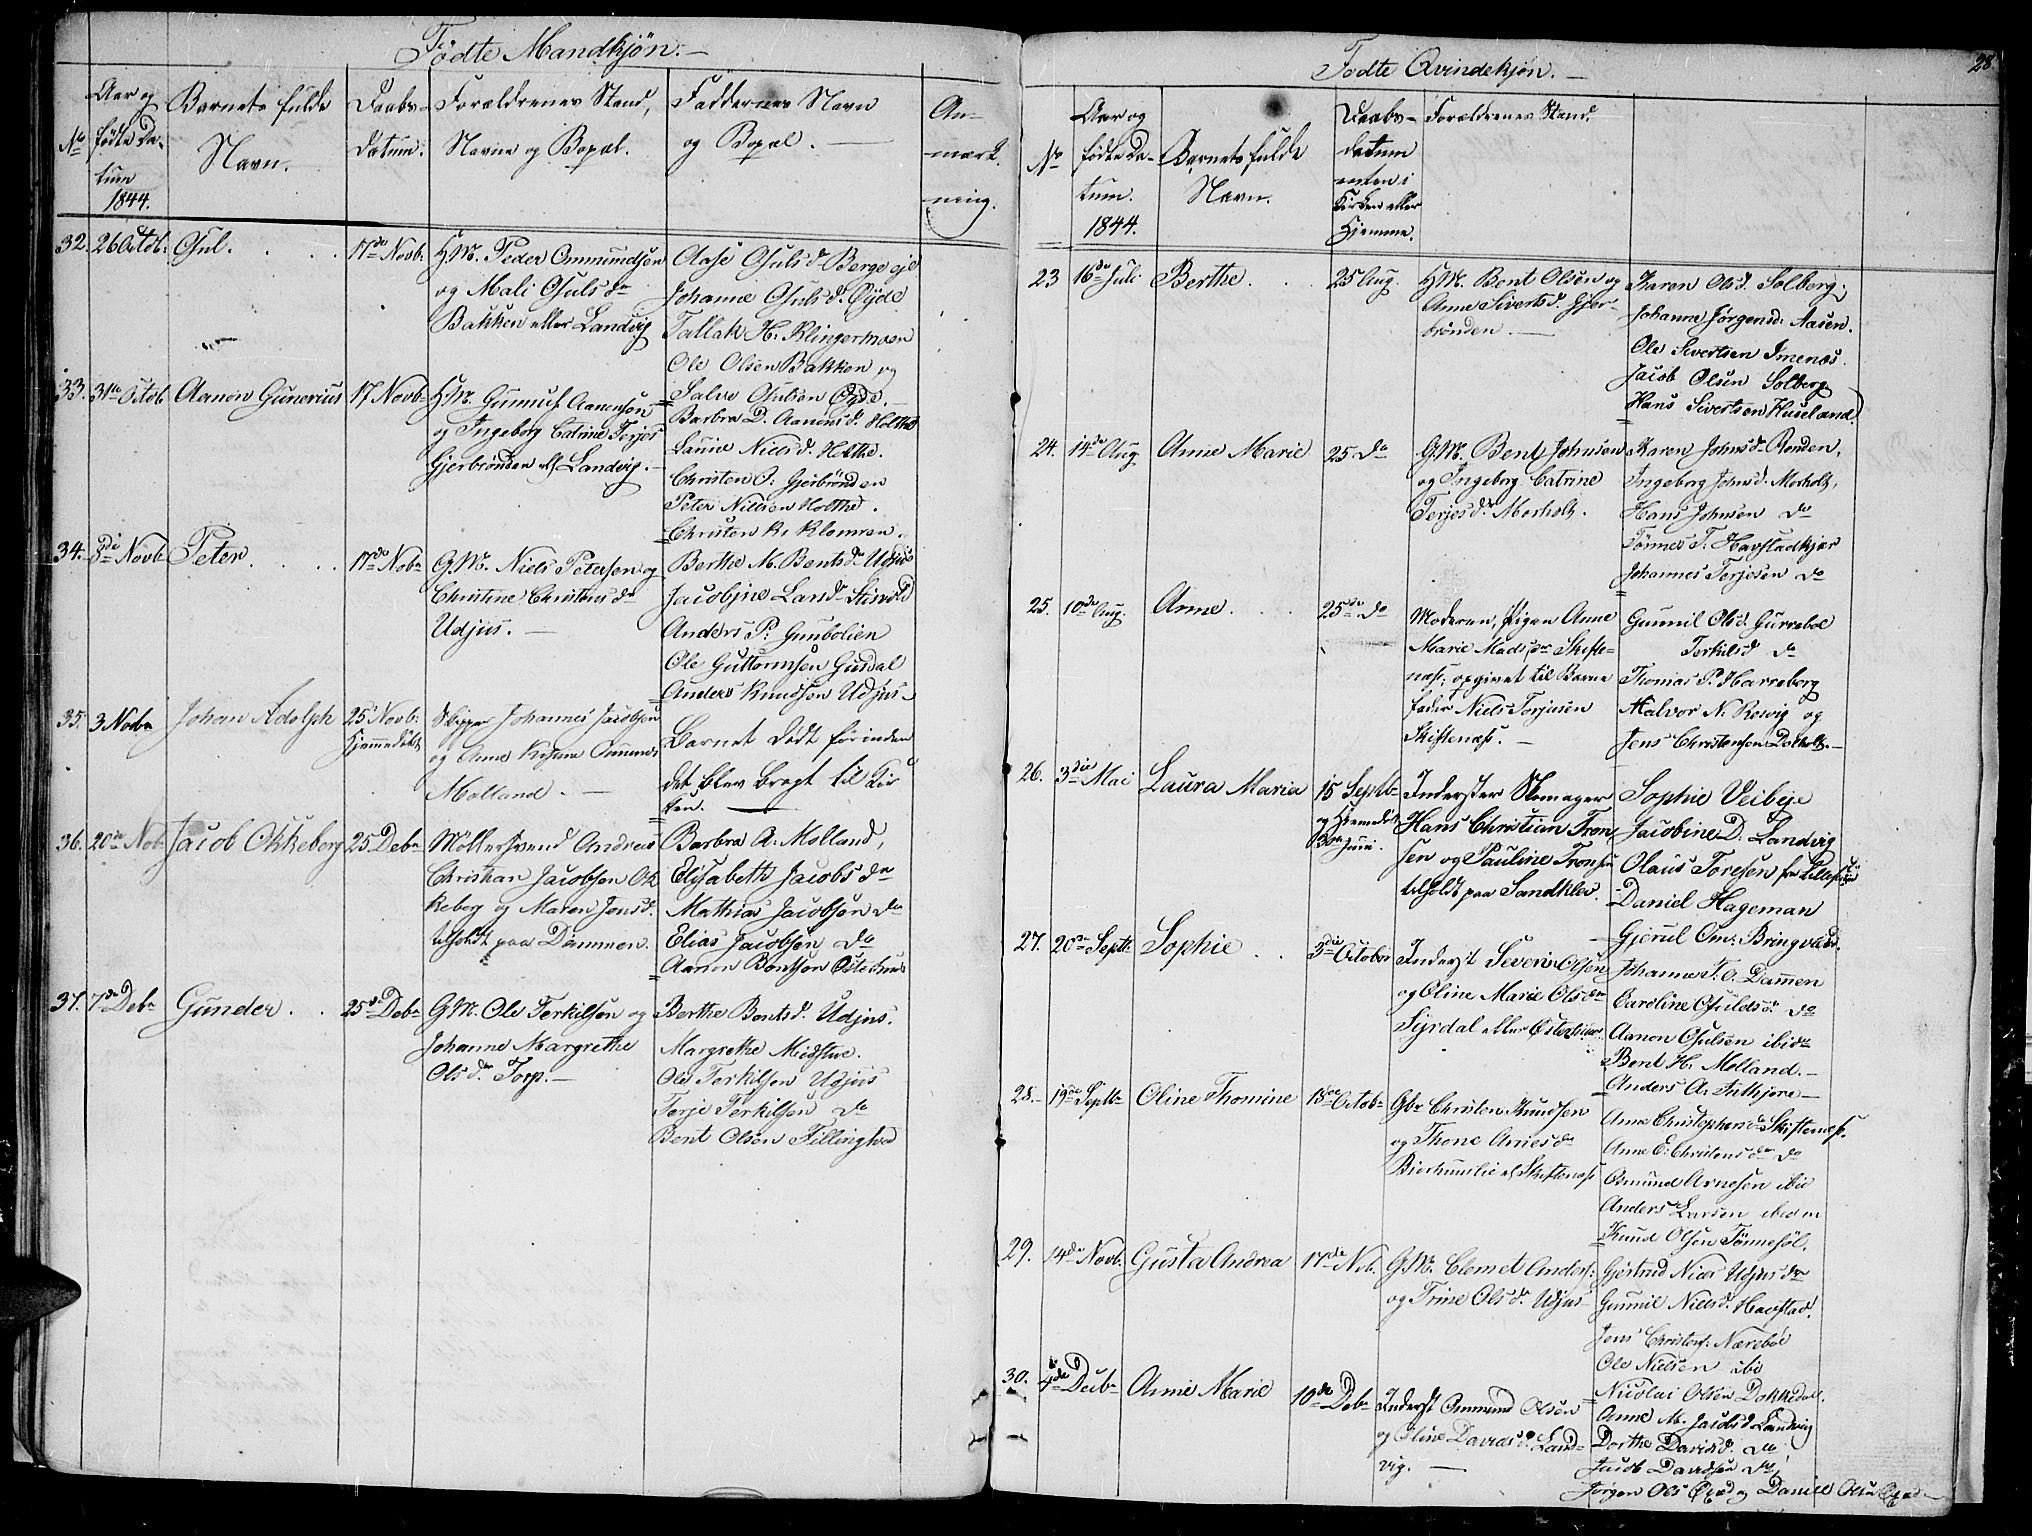 Fødte Mandkjøn.
No
Aar og
fødte Da-
tum
1844.
Barnets fulde
Navn.
Daabs-
datum.
Forældrenes Stand,
Navne og Bopæl.
Faddernes Navn
og Bopæl.
An-
mærk-
ning.
32. 26 Octob: Osul. 17de Novb:
H.M. Peder Ommundsen
og Mali Osulsdr
Bakken eller Landvig
Aase Osulsd. Berge eje
Johanne Osulsd. Øyde
Tallak H. Klingermoen
Ole Olsen Bakken og
Salve Osulsen Øyde.
33. 31te Octob Aanon Gunerius 17 Novb.
H.M. Gunnuf Aanonsen
og Ingeborg Catrine Terjes
Gjerbrønden af Landvig.
Barbra D. Aanonsd. Holthe
Laurie Nielsd. Holthe.
Christen O. Gjerbrönden
Peter Nielsen Holthe.
Christen K. Klomren.
34. 8de Novb Peter 17de Nobr
G.M. Niels Petersen og
Christine Christensdr
Udjus.
Berthe M. Bentsdr Udjus
Jacobine Lassd. Stisvold
Anders P. Gunbolien
Ole Guttormsen Gusdal
Anders Knudsen Udjus
35. 3 Nobr Johan Adolph 25 Novb:
Hjemmedöbt
Skipper Johannes Jacobsen
og Anne
Molland.
Barnet død förinden
det blev bragt til Kir
ken.
36. 20de Nob. Jacob Okkeberg 25 Debr
Møllersvend Andreas
Christian Jacobsen Ok
keberg og Maren Jensd.
tilholdt paa Dømmen.
Barbra A. Molland,
Elisabeth Jacobsdr
Mathias Jacobsen do
Elias Jacobsen do
Aanon Bentsen Østerhus
37. 7de Debr Gunder 25de Debr
G.M. Ole Terkilsen og
Johanne Margrethe
Olsdr Torp.
Berthe Bentsd. Udjus.
Margrethe Midstue.
Ole Terkilsen Udjus
Terje Terkilsen do
Bent Olsen Fillinghed
Fødte Qvindekjøn.
28
No
Aar og
fødte Da-
tum.
1844.
Barnets fulde
Navn.
Daabs-
datum
enten i
Kirken eller
Hjemme.
Forældrenes Stand.
23 16de Juli Berthe 25 Aug.
H.M. Bent Olsen og
Anne Sivertsd. Gjer-
brønden
Karen Olsd. Solberg.
Johanne Jørgensd. Aasen.
Ole Sivertsen Imenæs.
Jacob Olsen Solberg
Hans Sivertsen Huseland.
24. 14de Aug Anne Marie 25 do
G.M. Bent Johnsen
og Ingeborg Catrine
Terjesdr Morholt.
Karen Johnsdr Rønden,
Ingeborg Johnsd. Morholt,
Hans Johnsen do
Tønnes T. Havstadkjær
Johannes Terjesen do
25. 10de Aug. Anne. 25de do
Moderen, Pigen Anne
Marie Madsdr Skifte-
næs; opgivet til Barne
fader Niels Torjusen
Skiftenæs.
Gunnil Olsd. Gurreboe
Terkilsd do
Thomas P. Harreberg
Halvor N. Resvig og
Jens Christensen Dolholt.
26. 3die Mai Laura Maria 15 Septbr
og Hjemmedøbt
30 Juni.
Inderster Skomager
Hans Christian Tron
sen og Pauline Trons
tilholdt paa Sandklev.
Sophie Veibye
Jacobine D. Landvig
Olaus Toresen fra Lillesand
Daniel Hageman
Gjerul Om. Bringsværd.
27. 20de Septbr Sophie 3die October
Inderst Severin Olsen
og Oline Marie Olsdr
Syrdal eller Østerhus.
Johanne T. O. Dammen
Caroline Osulds do
Aanon Osulsen ibidm
Bent H. Molland.
Anders A. Futhjore
28. 19de Septbr Oline Thomine 15de Octobr
Gbr Christen Knudsen
og Thone Arnesdr
Biorhuuslie af Skiftenæs
Anne Christophersdr Skiftenæs.
Anne E. Christensdr do
Osmund Arnesen ibid
Anders Larsen ibidm
Knud Olsen Tønnesøl.
29. 14de Novb. Gusta Andrea 17de Nob.
G.M. Clemet Anders:
og Trine Olsdr Udjus
Gjertrud Niels Udjusdr
Gunnil Nielsd. Havstad.
Jens Christens. Nærebøe
Ole Nielsen ibi
Nicolai Olsen Dokkedal.
30. 4de Decbr Anne Marie 10de Debr
Inderst Ommund Olsen
og Oline Davidsdr Land-
vig.
Anne M. Jacobsd Landvig
Dorthe Davidsd. do
Jacob Davidsen do
Jörgen Ols Øied og Daniel Olsen Øied